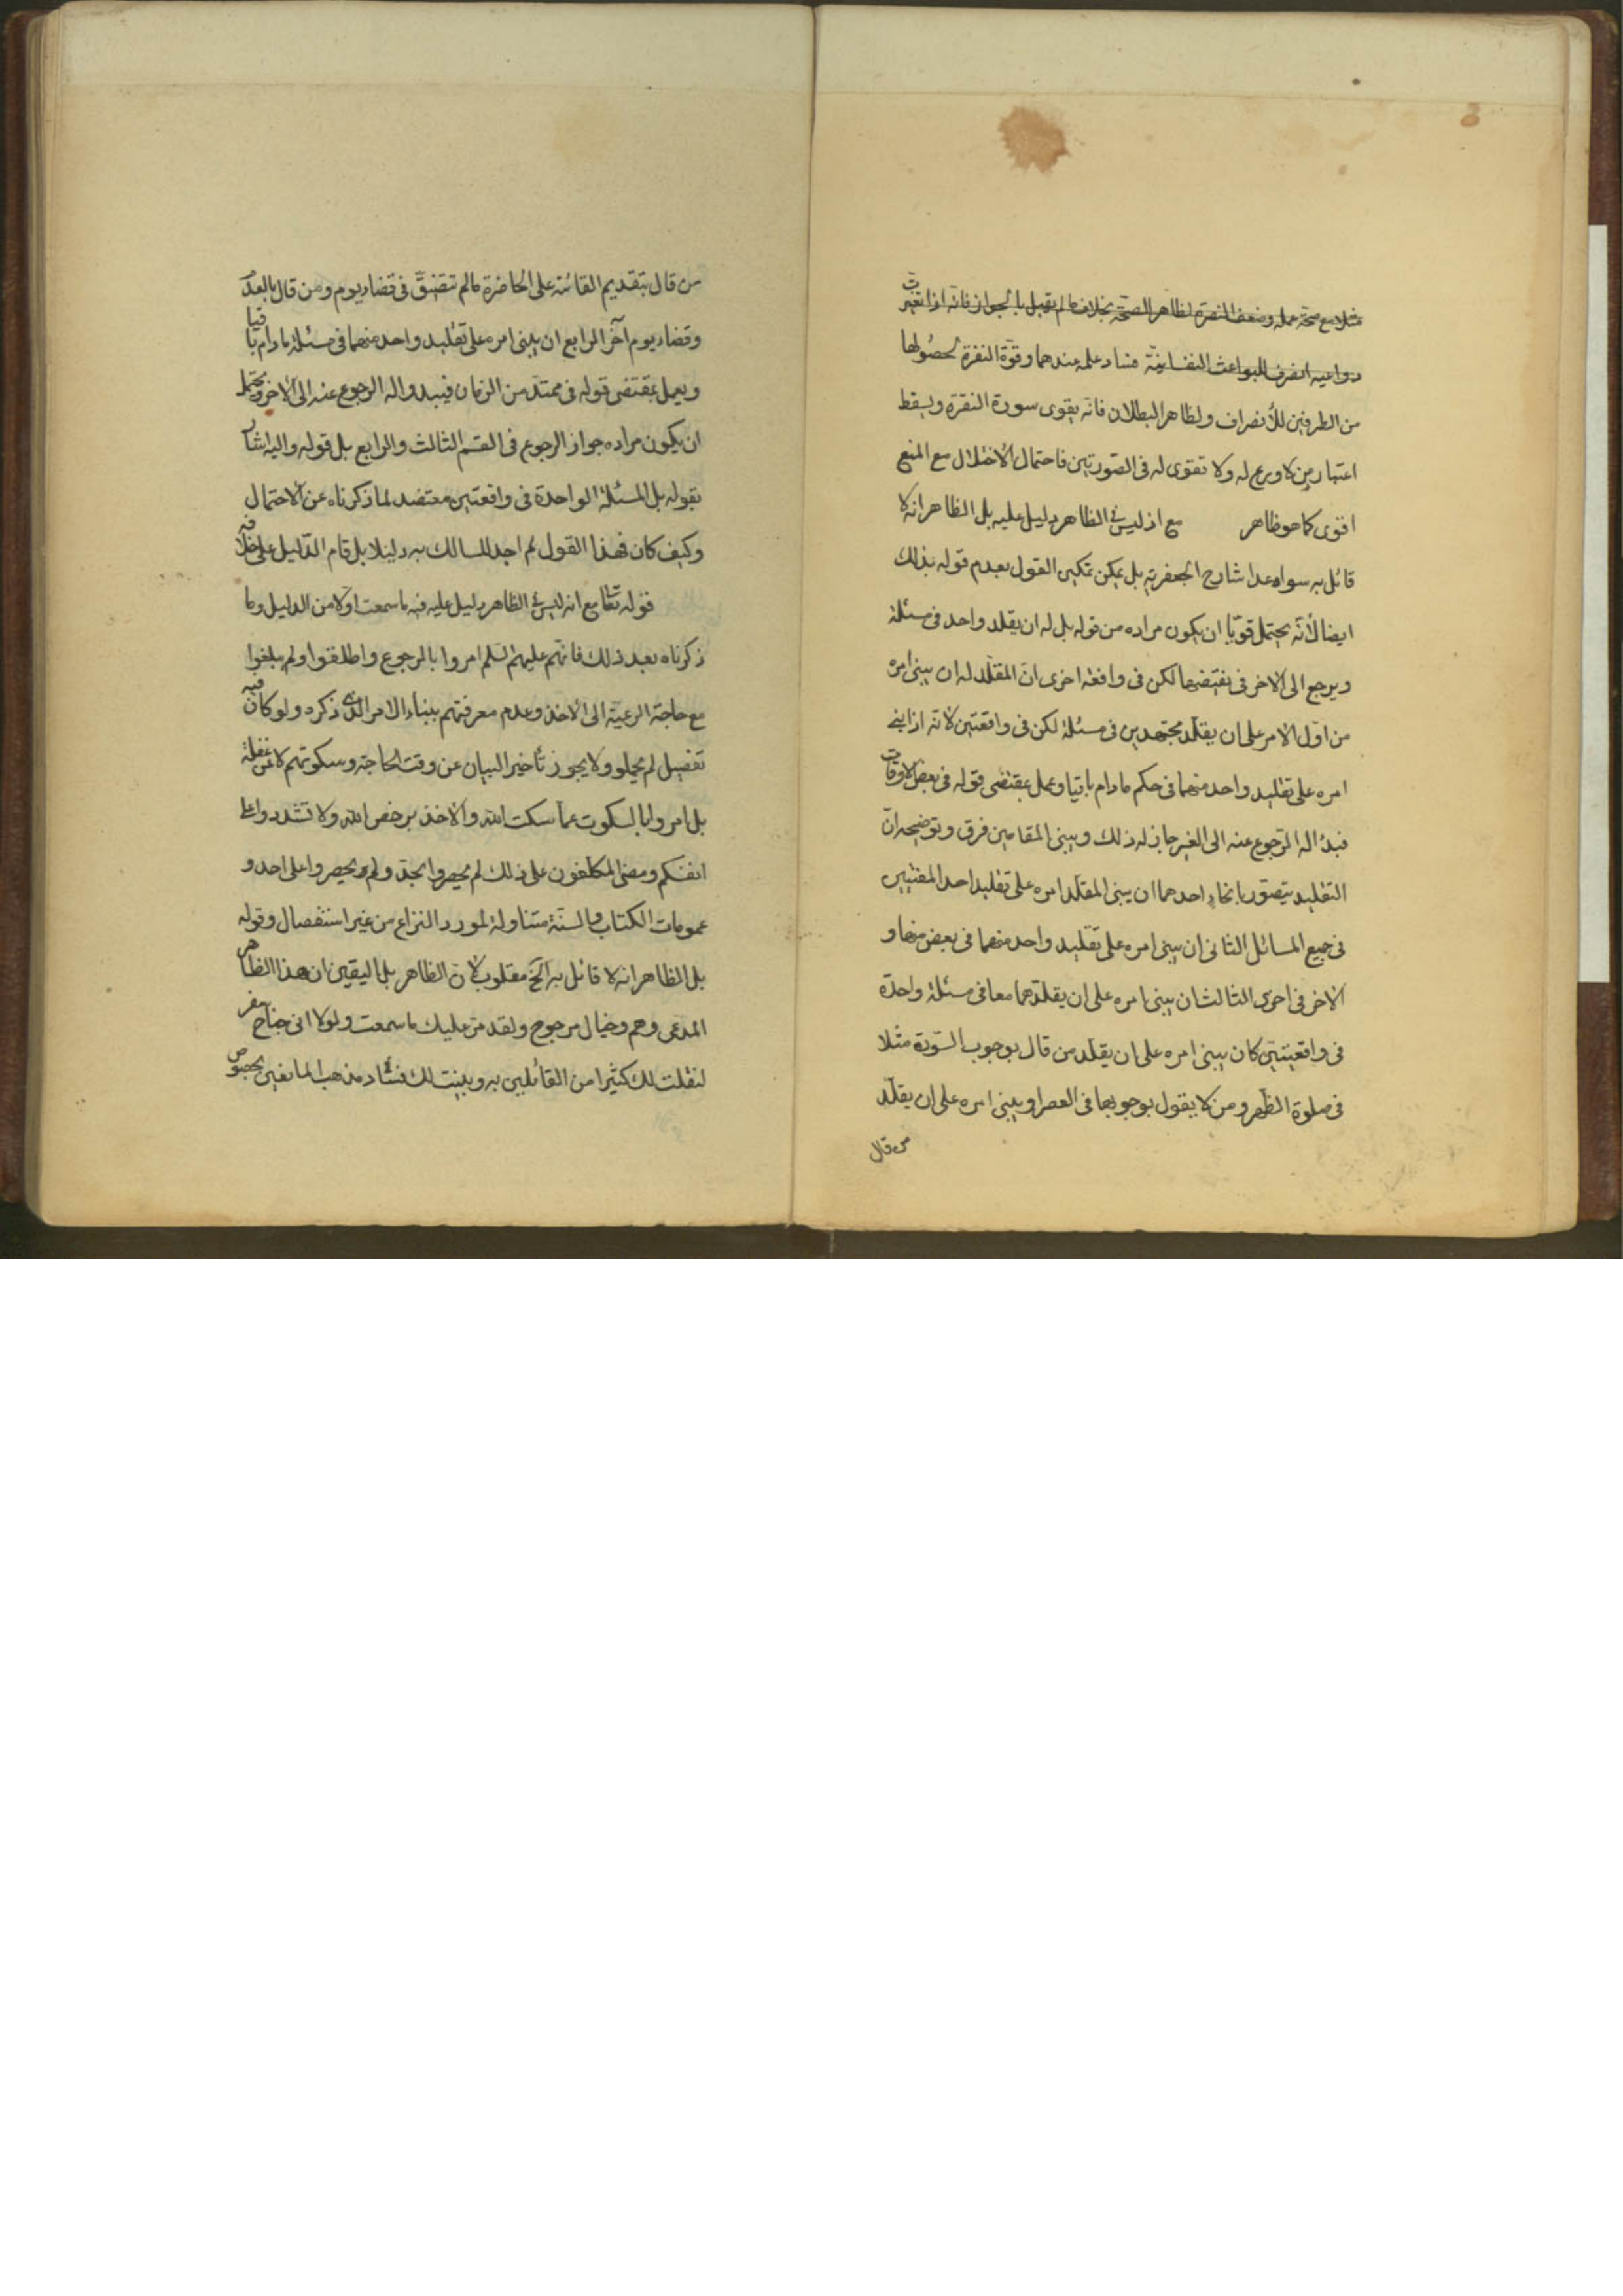 مثلا مع صحة عمله وضعف النفرة لظاهر الصحة بخلاف ما لم يقبل بالجواز فانه اذا تغيرت
دواعيه انصرف للبواعث النفسانية فساد علمه عندهما وقوة النفرة لحصولها
من الطرفين للأنصراف ولظاهر البطلان فانه يقوى سورة النفرة ويسقط
اعتبار من لا ورع له ولا تقوى له فى الصورتين فاحتمال الاختلال مع المنع
اقوى كما هو ظاهر مع اذ ليس فى الظاهر دليل عليه بل الظاهر انه لا
قائل به سواه عدا شارح الجعفرية بل يمكن تمكين القول بعدم قوله بذلك
ايضا لأنه يحتمل قويا ان يكون مراده من قوله بل له ان يقلد واحد فى مسئلة
ويرجع الى الاخر فى نقيضها لكن فى واقعة اخرى ان المقلد له ان يبنى امره
من اول الامر على ان يقلد مجتهدين فى مسئلة لكن فى واقعتين لانه اذا بنى
امره على تقليد واحد منهما فى حكم ما دام باقيا وعمل بمقتضى قوله فى بعض الاوقات
فبدا له الرجوع عنه الى الغير جاز له ذلك وبين المقامين فرق وتوضيحه ان
التقليد يتصور بانحاء احدهما ان يبنى المقلد امره على تقليد احد المفتيين
فى جميع المسائل الثانى ان يبنى امره على تقليد واحد منهما فى بعض منها و
الاخر فى اخرى الثالث ان يبنى امره على ان يقلدهما معا فى مسئلة واحدة
فى واقعيتين كان يبنى امره على ان يقلد من قال بوجوب السورة مثلا
فى صلوة الظهر ومن لا يقول بوجوبها فى العصر او يبنى امره على ان يقلد
من قال
من قال بتقديم الفائتة على الحاضرة ما لم تتضيق فى قضاء يوم ومن قال بالعدم
وقضاء يوم آخر الرابع ان يبنى امره على تقليد واحد منهما فى مسئلة ما دام باقيا
ويعمل بمقتضى قوله فى ممتد من الزمان فيبدو له الرجوع عنه الى الاخر ويحتمل
ان يكون مراده جواز الرجوع فى القسم الثالث والرابع بل قوله واليه اشار
بقوله بل المسئلة الواحدة فى واقعتين معتضد لما ذكرناه عن الاحتمال
وكيف كان فهذا القول لم اجد لسالك به دليلا بل قام الدليل على خلافه
قوله تقا مع انه ليس فى الظاهر دليل عليه فيه ما سمعت اولا من الدليل وما
ذكرناه بعد ذلك فانهم عليهم السلم امروا بالرجوع واطلقوا ولم يبلغوا
مع حاجة الرعية الى الاخذ وعدم معرفتهم ببناء الامر الذى ذكره ولو كان فيه
تفصيل لم يخلو ولا يجوز تأخير البيان عن وقت الحاجة وسكوتهم لا عن غفلة
بل امروا بالسكوت عما سكت الله والاخذ برخص الله ولا تشددوا على
انفسكم ومضى المكلفون على ذلك لم يحيصروا بجد ولم يحيصروا على احد و
عمومات الكتاب والسنة متناولة لمورد النزاع من غير استفصال وقوله
بل الظاهر انه لا قائل به الخ مقلوب لان الظاهر بل اليقين ان هذا الظاهر
المدعى وهم وخيال مرجوح ولقد مر عليك ما سمعت ولولا انى جناح سفر
لنقلت لك كثيرا من القائلين به وبينت لك فساد مذهب المانعين بخصوص